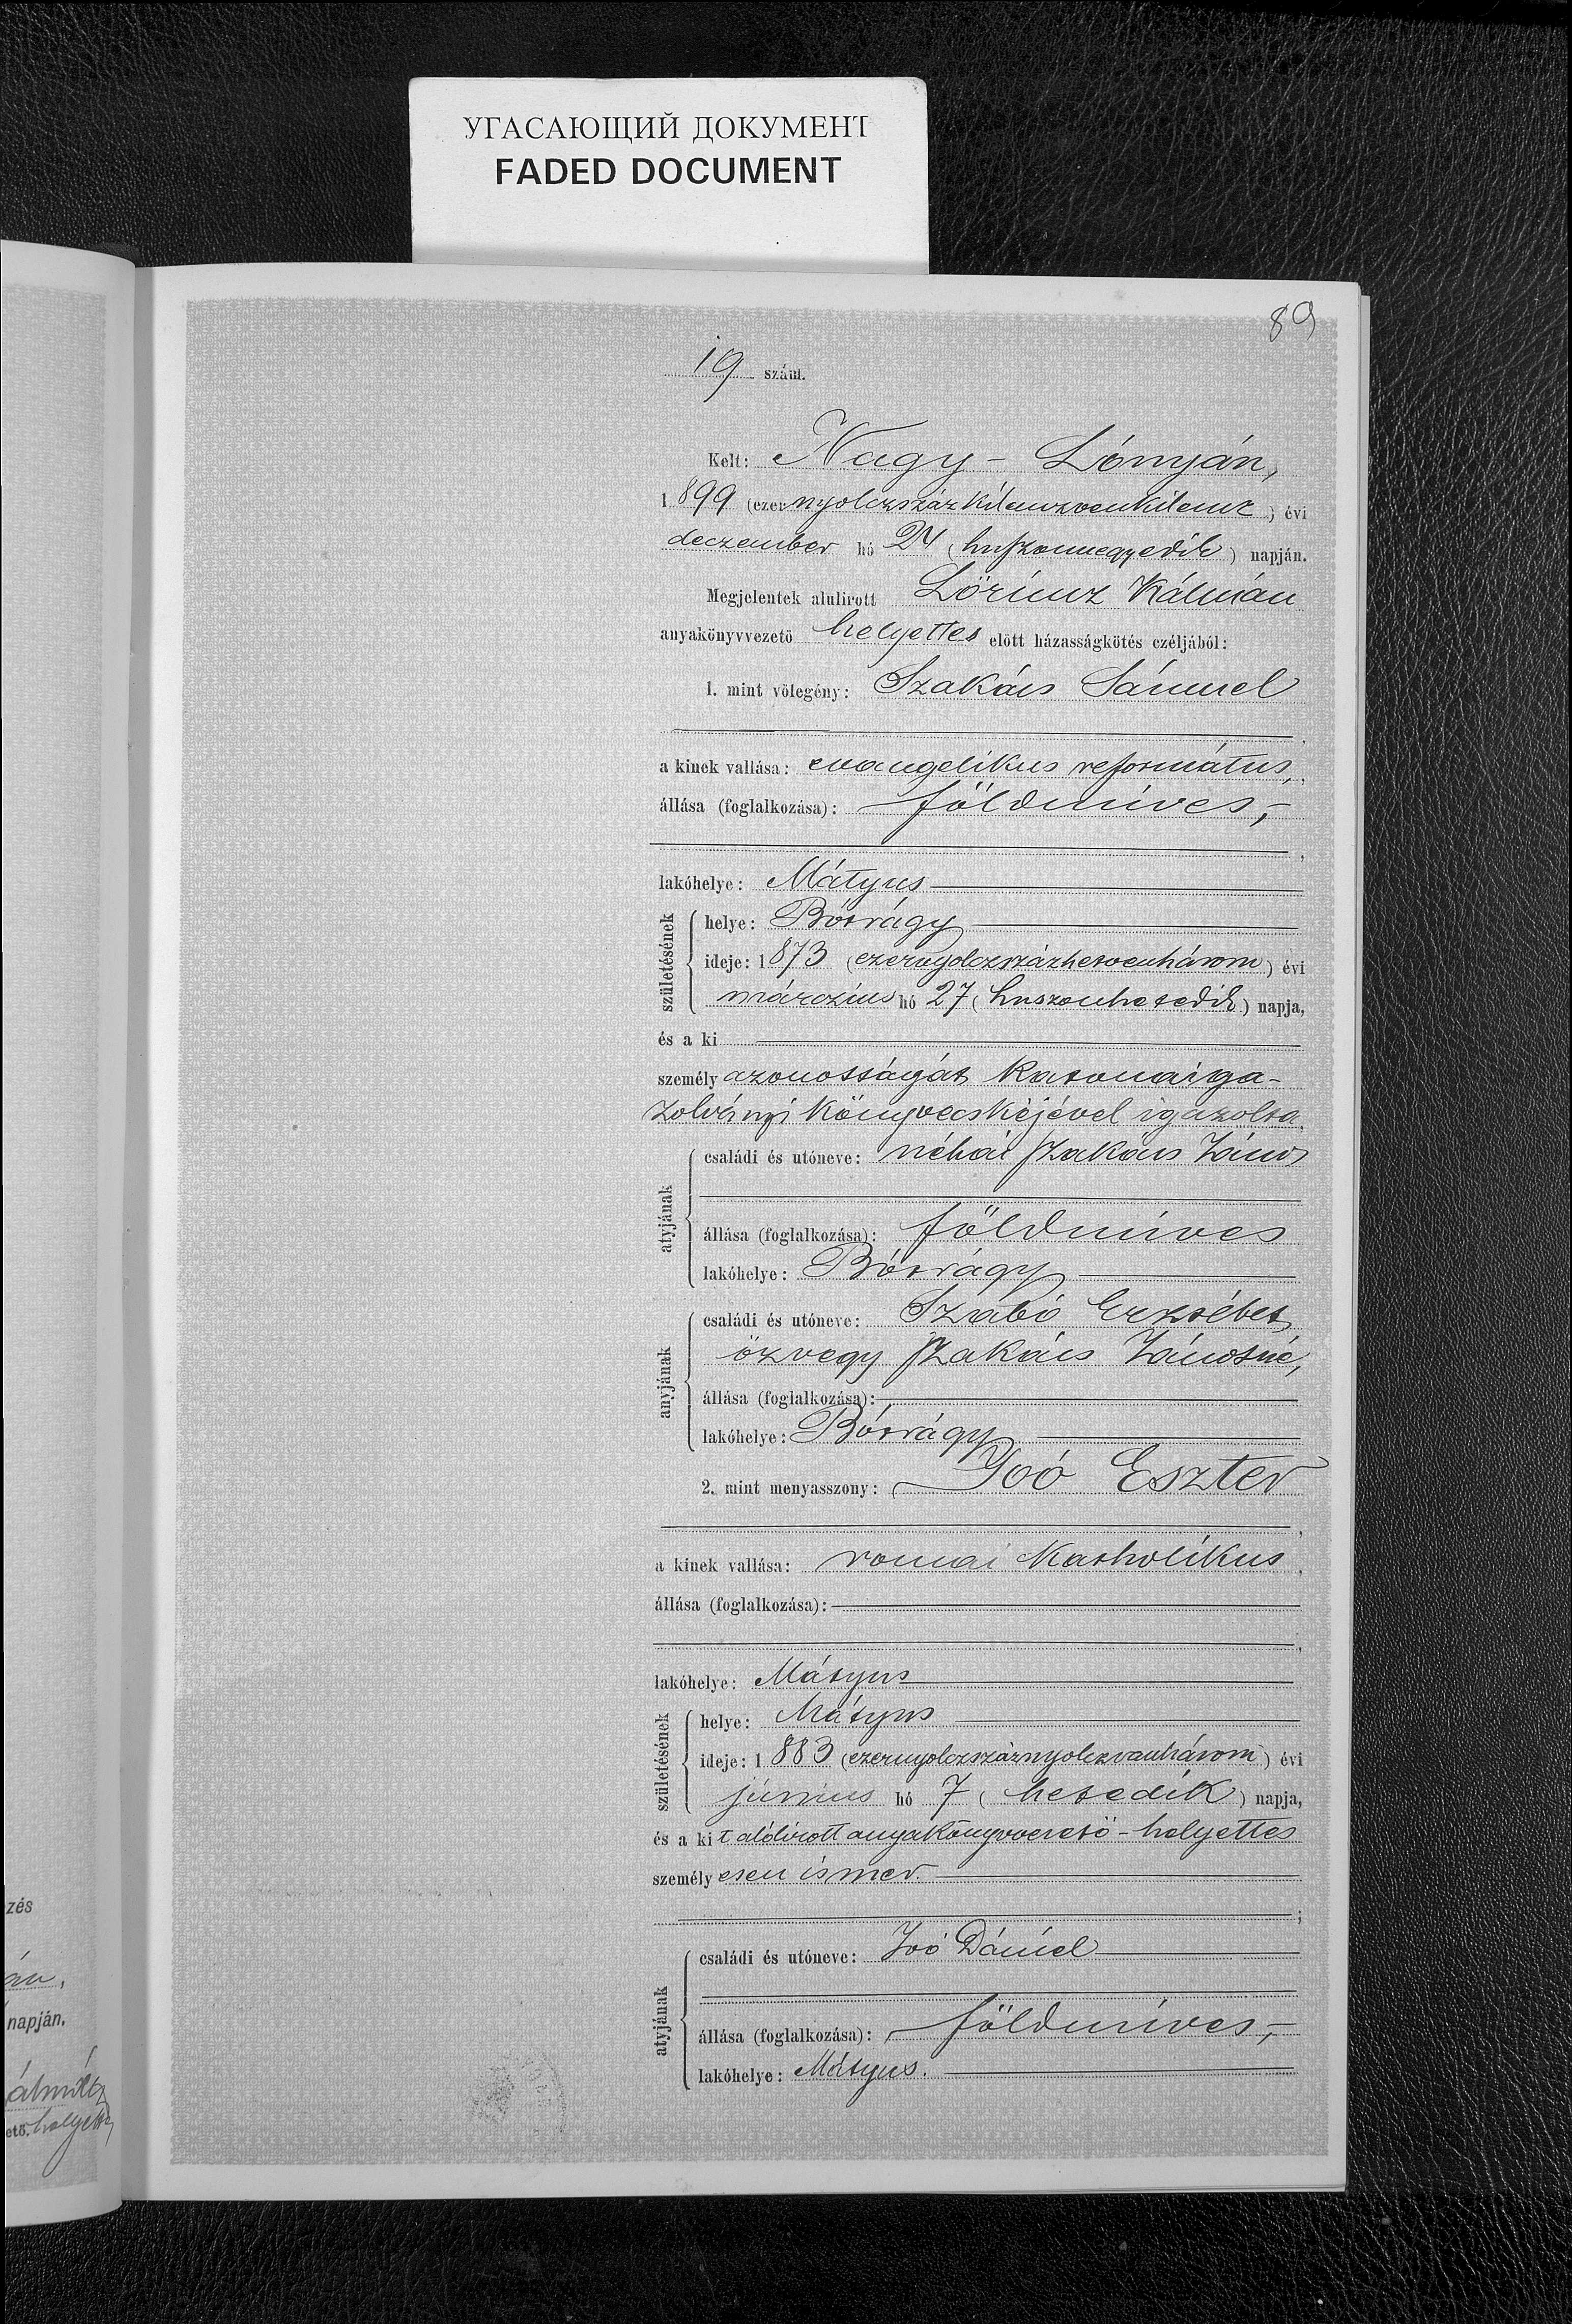 УГАСАЮЩИЙ ДОКУМЕНТ
FADED DOCUMENT
89
19 szám.
Kelt: Nagy-Lónyán,
1899 (ezernyolczszázkilenczvenkilencz) évi
deczember hó 24 (huszonnegyedik) napján.
Megjelentek alulirott Lörincz Kálmán
anyakönyvvezető helyettes előtt házasságkötés czéljából:
1. mint vőlegény: Szakács Sámuel
a kinek vallása: evangelikus református,
állása (foglalkozása): földmíves,-
lakóhelye: Mátyus
születésének
helye: Bótrágy
ideje: 1873 (ezernyolczszázhetvenhárom) évi
márczius hó 27 (huszonhetedik) napja,
és a ki
személy azonosságát katonai iga-
zolványi könyvecskéjével igazolta.
atyjának
családi és utóneve: néhai Szakács János
állása (foglalkozása): földmíves
lakóhelye: Bótrágy
anyjának
családi és utóneve: Szabó Erzsébet
özvegy Szakács Jánosné,
állása (foglalkozása):
lakóhelye: Bótrágy
2. mint menyasszony: Joó Eszter
a kinek vallása: romai katholikus,
állása (foglalkozása):
lakóhelye: Mátyus
születésének
helye: Mátyus
ideje: 1883 (ezernyolczszáznyolczvanhárom) évi
június hó 7 (hetedik) napja,
és a kit alólirott anyakönyvvezető-helyettes
személyesen ismer.
atyjának
családi és utóneve: Joó Dániel
állása (foglalkozása): földmíves,-
lakóhelye: Mátyus.
zés
án,
napján.
ető. helyettes